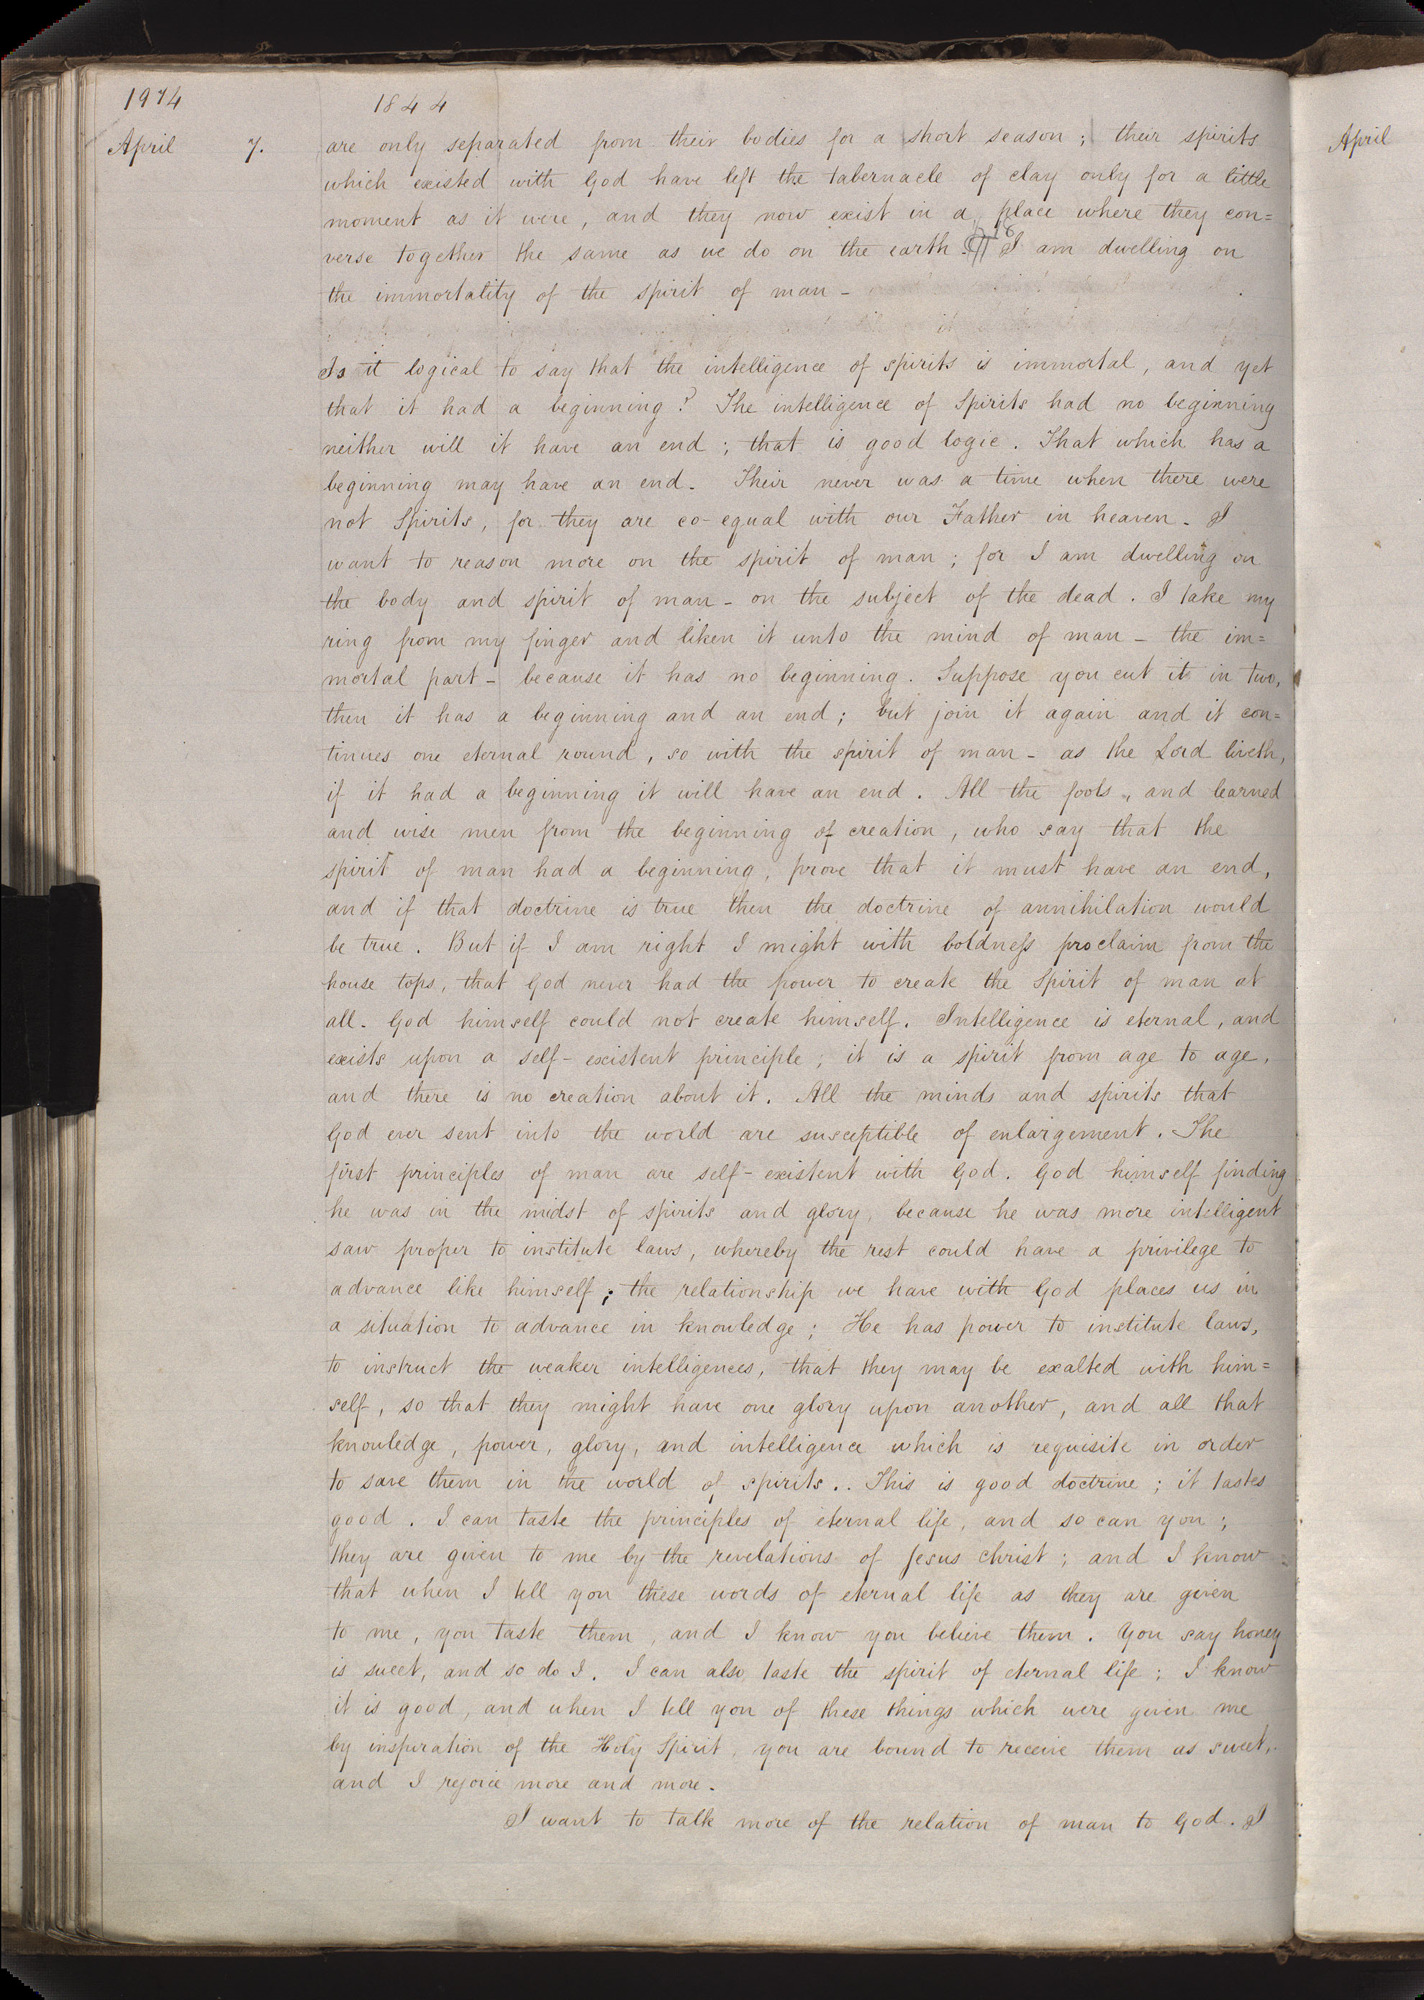 1974 1844
April 7. are only separated from their bodies for a short season; their spirits
which existed with God have left the tabernacle of clay only for a little
moment as it were, and they now exist in a place where they con=
verse together the same as we do on the earth. ¶ 16 I am dwelling on
the immortality of the spirit of man -
Is it logical to say that the intelligence of spirits is immortal, and yet
that it had a beginning? The intelligence of Spirits had no beginning
neither will it have an end; that is good logic. That which has a
beginning may have an end. Their never was a time when there were
not Spirits, for they are co-equal with our Father in heaven. I
want to reason more on the spirit of man; for I am dwelling on
the body and spirit of man - on the subject of the dead. I take my
ring from my finger and liken it unto the mind of man - the im=
mortal part - because it has no beginning. Suppose you cut it in two,
then it has a beginning and an end; but join it again and it con=
tinues one eternal round, so with the spirit of man - as the Lord liveth,
if it had a beginning it will have an end. All the fools, and learned
and wise men from the beginning of creation, who say that the
spirit of man had a beginning, prove that it must have an end,
and if that doctrine is true then the doctrine of annihilation would
be true. But if I am right I might with boldness proclaim from the
house tops, that God never had the power to create the Spirit of man at
all. God himself could not create himself. Intelligence is eternal, and
exists upon a self-existent principle; it is a spirit from age to age,
and there is no creation about it. All the minds and spirits that
God ever sent into the world are susceptible of enlargement. The
first principles of man are self-existent with God. God himself finding
he was in the midst of spirits and glory, because he was more intelligent
saw proper to institute laws, whereby the rest could have a privilege to
advance like himself; the relationship we have with God places us in
a situation to advance in knowledge; He has power to institute laws,
to instruct the weaker intelligences, that they may be exalted with him=
self, so that they might have one glory upon another, and all that
knowledge, power, glory, and intelligence which is requisite in order
to save them in the world of spirits.. This is good doctrine; it tastes
good. I can taste the principles of eternal life, and so can you;
they are given to me by the revelations of Jesus Christ; and I know
that when I tell you these words of eternal life as they are given
to me, you taste them, and I know you believe them. You say honey
is sweet, and so do I. I can also taste the spirit of eternal life; I know
it is good, and when I tell you of these things which were given me
by inspiration of the Holy Spirit, you are bound to receive them as sweet,
and I rejoice more and more.
I want to talk more of the relation of man to God. I
April